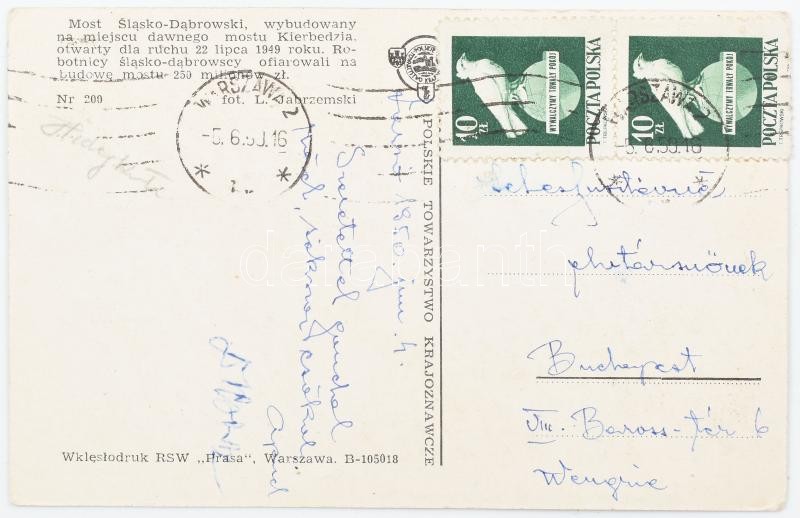 Most Śląsko-Dąbrowski, wybudowany
na miejscu dawnego mostu Kierbedzia,
otwarty dla ruchu 22 lipca 1949 roku. Ro-
botnicy śląsko-dąbrowscy ofiarowali na
budowę mostu 250 milionów zł.
Nr 200 fot. L. Jabrzemski
WARSZAWA 2
-5.6.50.16
10 ZŁ
WYWALCZYMY TRWAŁY POKÓJ
POCZTA POLSKA
10 ZŁ
WYWALCZYMY TRWAŁY POKÓJ
POCZTA POLSKA
WARSZAWA 2
-5.6.50.16
POLSKIE TOWARZYSTWO KRAJOZNAWCZE
1950. jun. 4.
Szeretettel gondol
sokszor csókol
Apád
Budapest
VIII. Baross-tér 6
Wengria
Wklęsłodruk RSW „Prasa", Warszawa. B-105018
darabanth